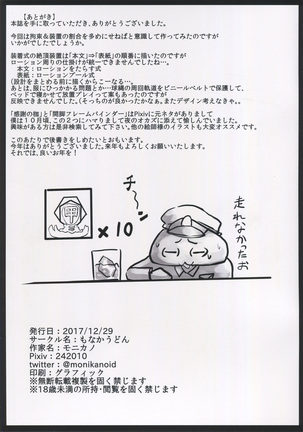 【あとがき】
本誌を手に取っていただき、ありがとうございました。
今回は拘束&装置の割合を多めにせねばと意識して作ってみたのですが
いかがでしたでしょうか。
装着式の絶頂装置は「本文」⇒「表紙」の順番に描いたのですが
ローション周りの仕掛けが統一できませんでしたね…。
本文:ローションをたらす式
表紙:ローションプール式
(設計をまとめる前に描くからこーなる…。
あとは、服にひっかかる問題とか…球縄の周回軌道をビニールベルトで保護して、
ベッドで寝かせて放置プレイって案もあったのですが
反映できませんでした。(そっちのが良かったかなぁ。またデザインさせてください。
「感謝の枷」と「開脚フレームバインダー」はPixivに元ネタがありまして
僕は10月頃、この2つにハマりまして夜のオカズに添えて愉しんでいました。
興味がある方は是非検索してみて下さい。他の絵師様のイラストも大変オススメです。
このあたりで後書きをしたいとおもいます。
今年はありがとうございました。来年もよろしくお願いいたします。
それでは、良いお年を!
チ〜ン
走れなかったお
×10
発行日:2017/12/29
サークル名:もなかうどん
作家名:モニカノ
Pixiv:242010
twitter:@monikanoid
印刷:グラフィック
※無断転載複製を固く禁じます
※18歳未満の所持・閲覧を固く禁じます